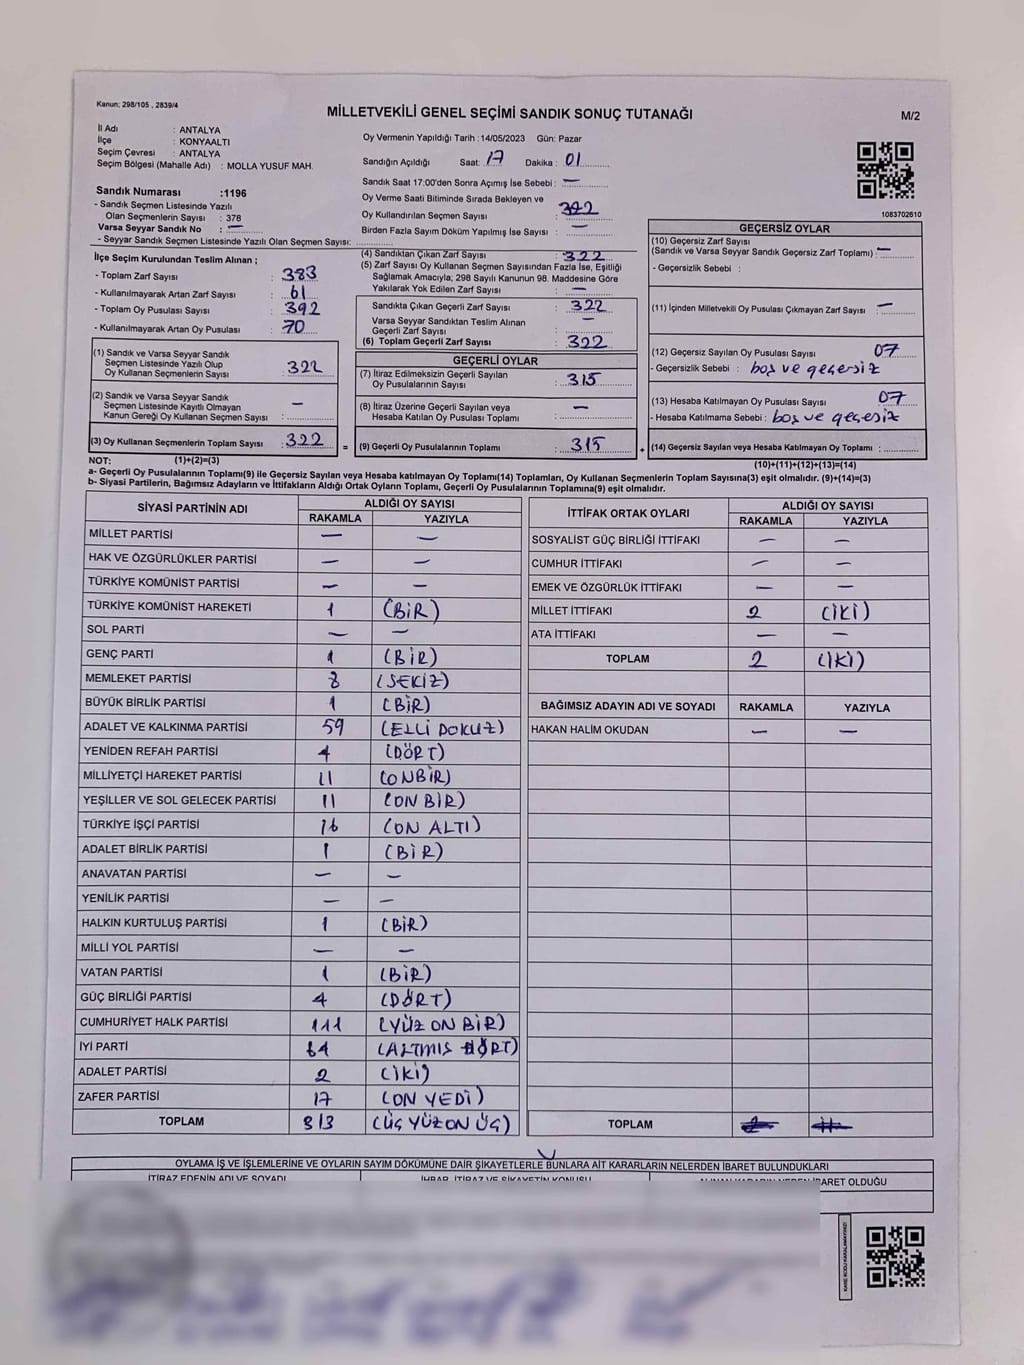 Kanun: 298/105 , 2839/4
MİLLETVEKİLİ GENEL SEÇİMİ SANDIK SONUÇ TUTANAĞI
M/2
İl Adı : ANTALYA
İlçe : KONYAALTI
Seçim Çevresi : ANTALYA
Seçim Bölgesi (Mahalle Adı) : MOLLA YUSUF MAH.
Sandık Numarası :1196
- Sandık Seçmen Listesinde Yazılı
Olan Seçmenlerin Sayısı : 378
Varsa Seyyar Sandık No : —
- Seyyar Sandık Seçmen Listesinde Yazılı Olan Seçmen Sayısı:
Oy Vermenin Yapıldığı Tarih :14/05/2023 Gün: Pazar
Sandığın Açıldığı Saat: 17 Dakika : 01
Sandık Saat 17:00'den Sonra Açımış İse Sebebi : —
Oy Verme Saati Bitiminde Sırada Bekleyen ve
Oy Kullandırılan Seçmen Sayısı :
Birden Fazla Sayım Döküm Yapılmış İse Sayısı : —
1083702610
İlçe Seçim Kurulundan Teslim Alınan ;
- Toplam Zarf Sayısı : 383
- Kullanılmayarak Artan Zarf Sayısı : 61
- Toplam Oy Pusulası Sayısı : 392
- Kullanılmayarak Artan Oy Pusulası : 70
(1) Sandık ve Varsa Seyyar Sandık
Seçmen Listesinde Yazılı Olup
Oy Kullanan Seçmenlerin Sayısı : 322
(2) Sandık ve Varsa Seyyar Sandık
Seçmen Listesinde Kayıtlı Olmayan
Kanun Gereği Oy Kullanan Seçmen Sayısı : —
(3) Oy Kullanan Seçmenlerin Toplam Sayısı : 322
(4) Sandıktan Çıkan Zarf Sayısı : 322
(5) Zarf Sayısı Oy Kullanan Seçmen Sayısından Fazla İse, Eşitliği
Sağlamak Amacıyla; 298 Sayılı Kanunun 98. Maddesine Göre
Yakılarak Yok Edilen Zarf Sayısı : —
Sandıkta Çıkan Geçerli Zarf Sayısı : 322
Varsa Seyyar Sandıktan Teslim Alınan
Geçerli Zarf Sayısı : —
(6) Toplam Geçerli Zarf Sayısı : 322
GEÇERLİ OYLAR
(7) İtiraz Edilmeksizin Geçerli Sayılan
Oy Pusulalarının Sayısı : 315
(8) İtiraz Üzerine Geçerli Sayılan veya
Hesaba Katılan Oy Pusulası Toplamı : —
= (9) Geçerli Oy Pusulalarının Toplamı : 315
GEÇERSİZ OYLAR
(10) Geçersiz Zarf Sayısı
(Sandık ve Varsa Seyyar Sandık Geçersiz Zarf Toplamı) : —
- Geçersizlik Sebebi :
(11) İçinden Milletvekili Oy Pusulası Çıkmayan Zarf Sayısı : —
(12) Geçersiz Sayılan Oy Pusulası Sayısı : 07
- Geçersizlik Sebebi : boş ve geçersiz
(13) Hesaba Katılmayan Oy Pusulası Sayısı : 07
- Hesaba Katılmama Sebebi : boş ve geçesiz
+ (14) Geçersiz Sayılan veya Hesaba Katılmayan Oy Toplamı :
NOT: (1)+(2)=(3)
(10)+(11)+(12)+(13)=(14)
a- Geçerli Oy Pusulalarının Toplamı(9) ile Geçersiz Sayılan veya Hesaba katılmayan Oy Toplamı(14) Toplamları, Oy Kullanan Seçmenlerin Toplam Sayısına(3) eşit olmalıdır. (9)+(14)=(3)
b- Siyasi Partilerin, Bağımsız Adayların ve İttifakların Aldığı Ortak Oyların Toplamı, Geçerli Oy Pusulalarının Toplamına(9) eşit olmalıdır.
SİYASİ PARTİNİN ADI ALDIĞI OY SAYISI
RAKAMLA YAZIYLA
MİLLET PARTİSİ — —
HAK VE ÖZGÜRLÜKLER PARTİSİ — —
TÜRKİYE KOMÜNİST PARTİSİ — —
TÜRKİYE KOMÜNİST HAREKETİ 1 (BİR)
SOL PARTİ — —
GENÇ PARTİ 1 (BİR)
MEMLEKET PARTİSİ 8 (SEKİZ)
BÜYÜK BİRLİK PARTİSİ 1 (BİR)
ADALET VE KALKINMA PARTİSİ 59 (ELLİ DOKUZ)
YENİDEN REFAH PARTİSİ 4 (DÖRT)
MİLLİYETÇİ HAREKET PARTİSİ 11 (ONBİR)
YEŞİLLER VE SOL GELECEK PARTİSİ 11 (ON BİR)
TÜRKİYE İŞÇİ PARTİSİ 16 (ON ALTI)
ADALET BİRLİK PARTİSİ 1 (BİR)
ANAVATAN PARTİSİ — —
YENİLİK PARTİSİ — —
HALKIN KURTULUŞ PARTİSİ 1 (BİR)
MİLLİ YOL PARTİSİ — —
VATAN PARTİSİ 1 (BİR)
GÜÇ BİRLİĞİ PARTİSİ 4 (DÖRT)
CUMHURİYET HALK PARTİSİ 111 (YÜZ ON BİR)
İYİ PARTİ 64 (ALTMIŞ DÖRT)
ADALET PARTİSİ 2 (İKİ)
ZAFER PARTİSİ 17 (ON YEDİ)
TOPLAM 313 (ÜÇ YÜZ ON ÜÇ)
İTTİFAK ORTAK OYLARI ALDIĞI OY SAYISI
RAKAMLA YAZIYLA
SOSYALİST GÜÇ BİRLİĞİ İTTİFAKI — —
CUMHUR İTTİFAKI — —
EMEK VE ÖZGÜRLÜK İTTİFAKI — —
MİLLET İTTİFAKI 2 (İKİ)
ATA İTTİFAKI — —
TOPLAM 2 (İKİ)
BAĞIMSIZ ADAYIN ADI VE SOYADI RAKAMLA YAZIYLA
HAKAN HALİM OKUDAN — —
TOPLAM
OYLAMA İŞ VE İŞLEMLERİNE VE OYLARIN SAYIM DÖKÜMÜNE DAİR ŞİKAYETLERLE BUNLARA AİT KARARLARIN NELERDEN İBARET BULUNDUKLARI
İTİRAZ EDENİN ADI VE SOYADI
İHBAR, İTİRAZ VE ŞİKAYETİN KONUSU
İBARET OLDUĞU